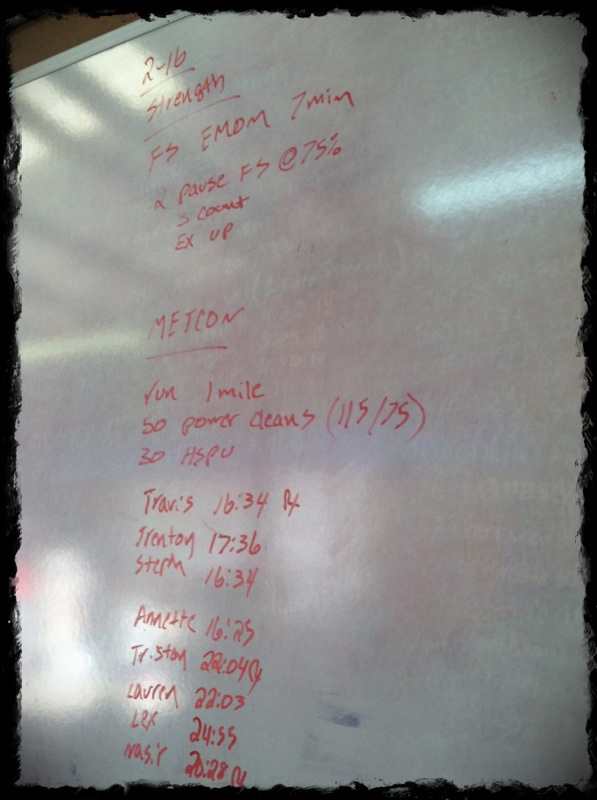 2-16
Strength
FS EMOM 7min
2 pause FS @ 75%
3 count
EX UP
METCON
run 1mile
50 power cleans (115/75)
30 HSPU
Travis 16:34 Rx
Trenton 17:36
Steph 16:34
Annette 16:25
Tristan 22:04 Rx
Lauren 22:03
Lex 24:55
Nasir 20:28 Rx